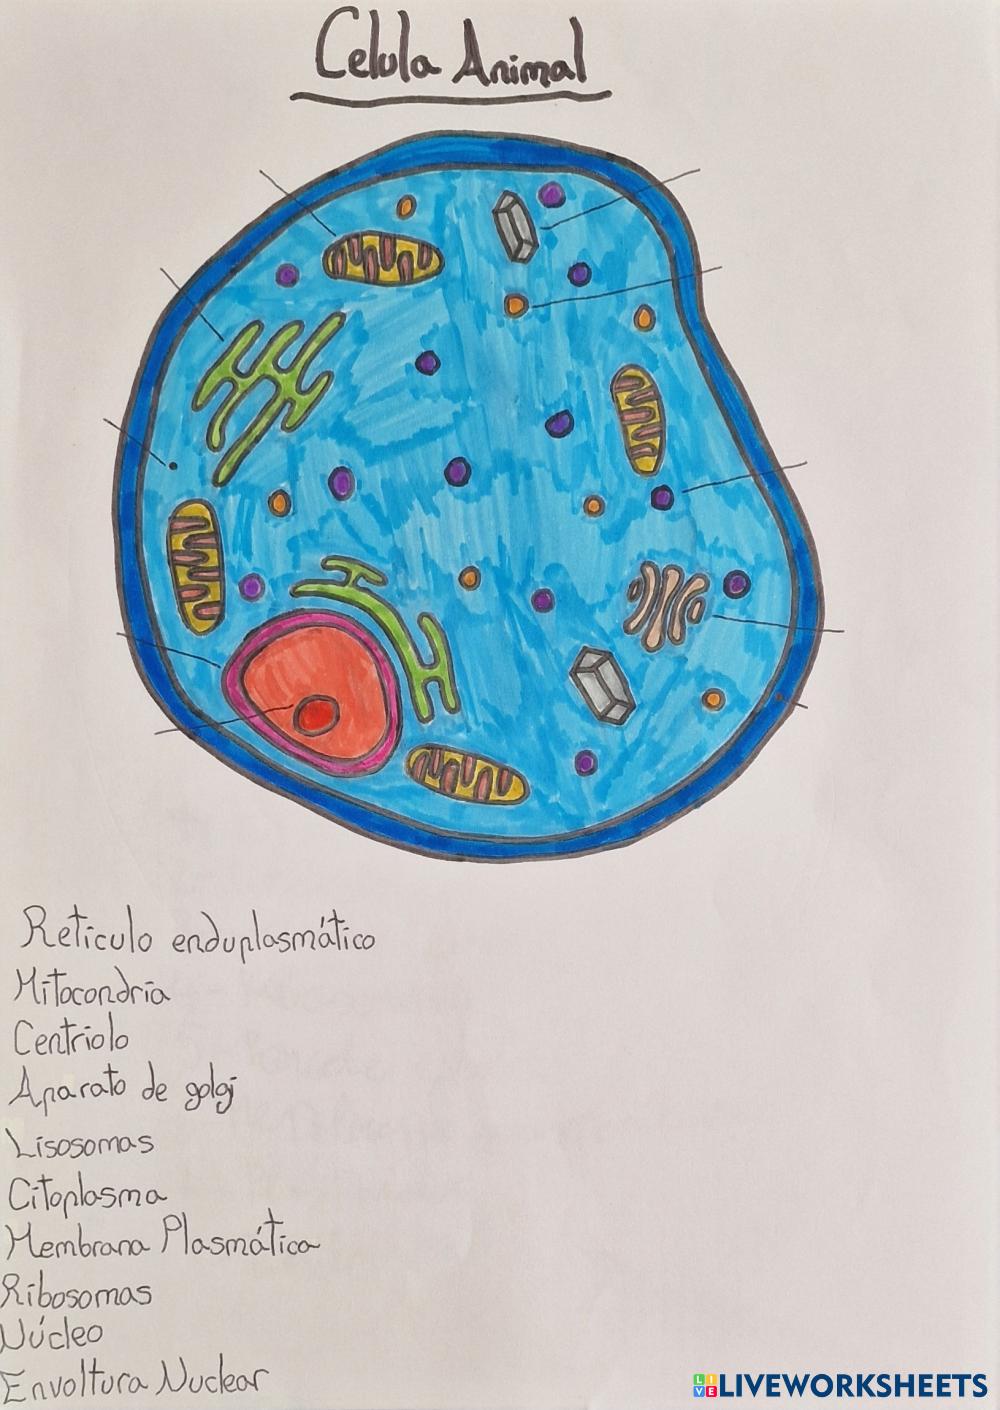 Celula Animal
Retículo enduplasmático
Mitocondria
Centriolo
Aparato de golgi
Lisosomas
Citoplasma
Membrana Plasmática
Ribosomas
Núcleo
Envoltura Nuclear
LIVEWORKSHEETS